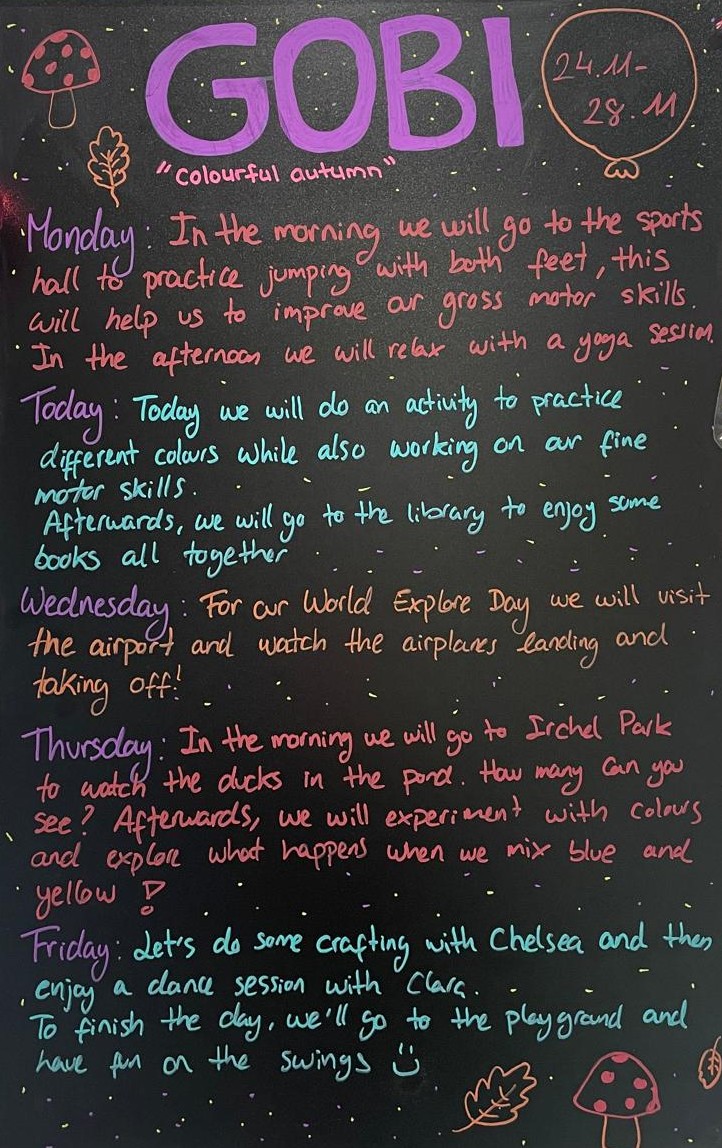 GOBI
24.11-
28.11
"colourful autumn"
Monday: In the morning we will go to the sports
hall to practice jumping with both feet, this
will help us to improve our gross motor skills.
In the afternoon we will relax with a yoga session.
Today: Today we will do an activity to practice
different colours while also working on our fine
motor skills.
Afterwards, we will go to the library to enjoy some
books all together
Wednesday: For our World Explore Day we will visit
the airport and watch the airplanes landing and
taking off!
Thursday: In the morning we will go to Irchel Park
to watch the ducks in the pond. How many can you
see? Afterwards, we will experiment with colours
and explore what happens when we mix blue and
yellow!
Friday: Let's do some crafting with Chelsea and then
enjoy a dance session with Clara.
To finish the day, we'll go to the playground and
have fun on the swings